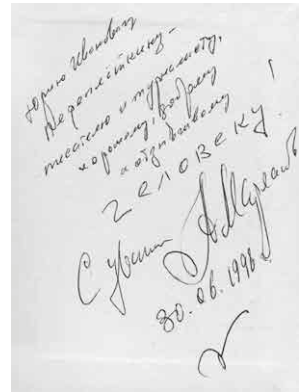 Юрию Ивановичу
писателю и журналисту,
хорошему, доброму
и отзывчивому
человеку!
С уваж
30.06.1996 г.